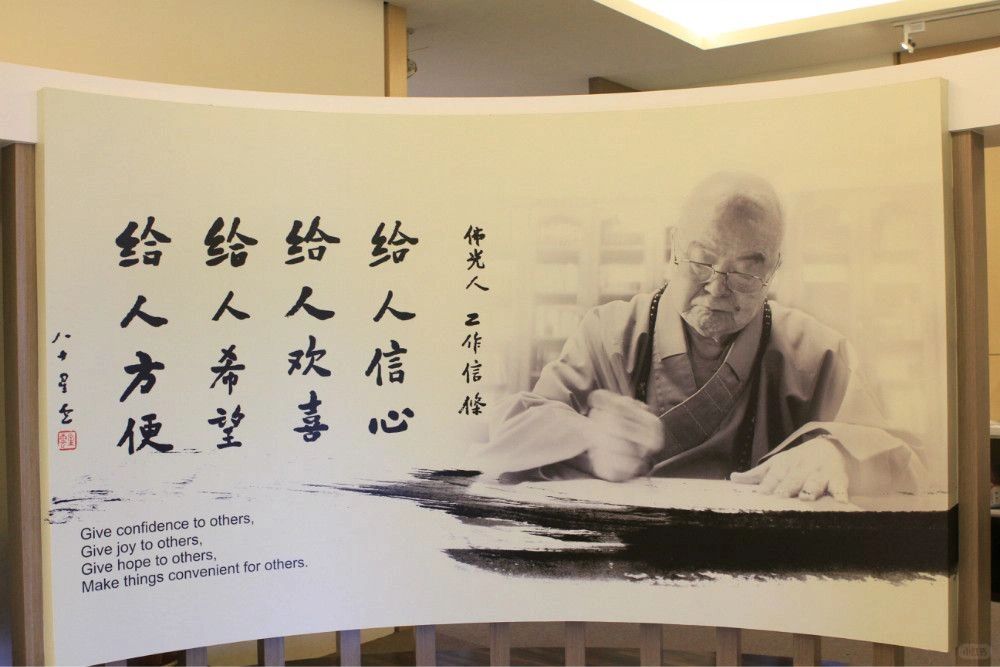 佛光人 工作信條
给人信心
给人欢喜
给人希望
给人方便
八十星云
Give confidence to others,
Give joy to others,
Give hope to others,
Make things convenient for others.
小红书